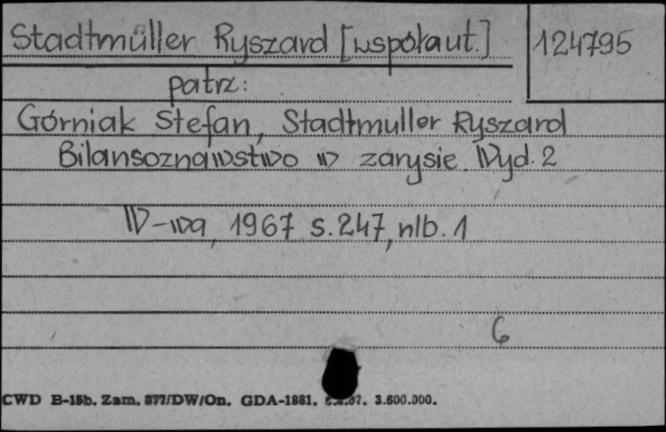 Stadtmüller Ryszard [współaut.] 124795
patrz:
Górniak Stefan, Stadtmuller Ryszard
Bilansoznawstwo w zarysie. Wyd. 2
W-wa, 1967 s. 247, nlb. 1
6
CWD B-15b. Zam. 877/DW/On. GDA-1881. 67. 3.600.000.